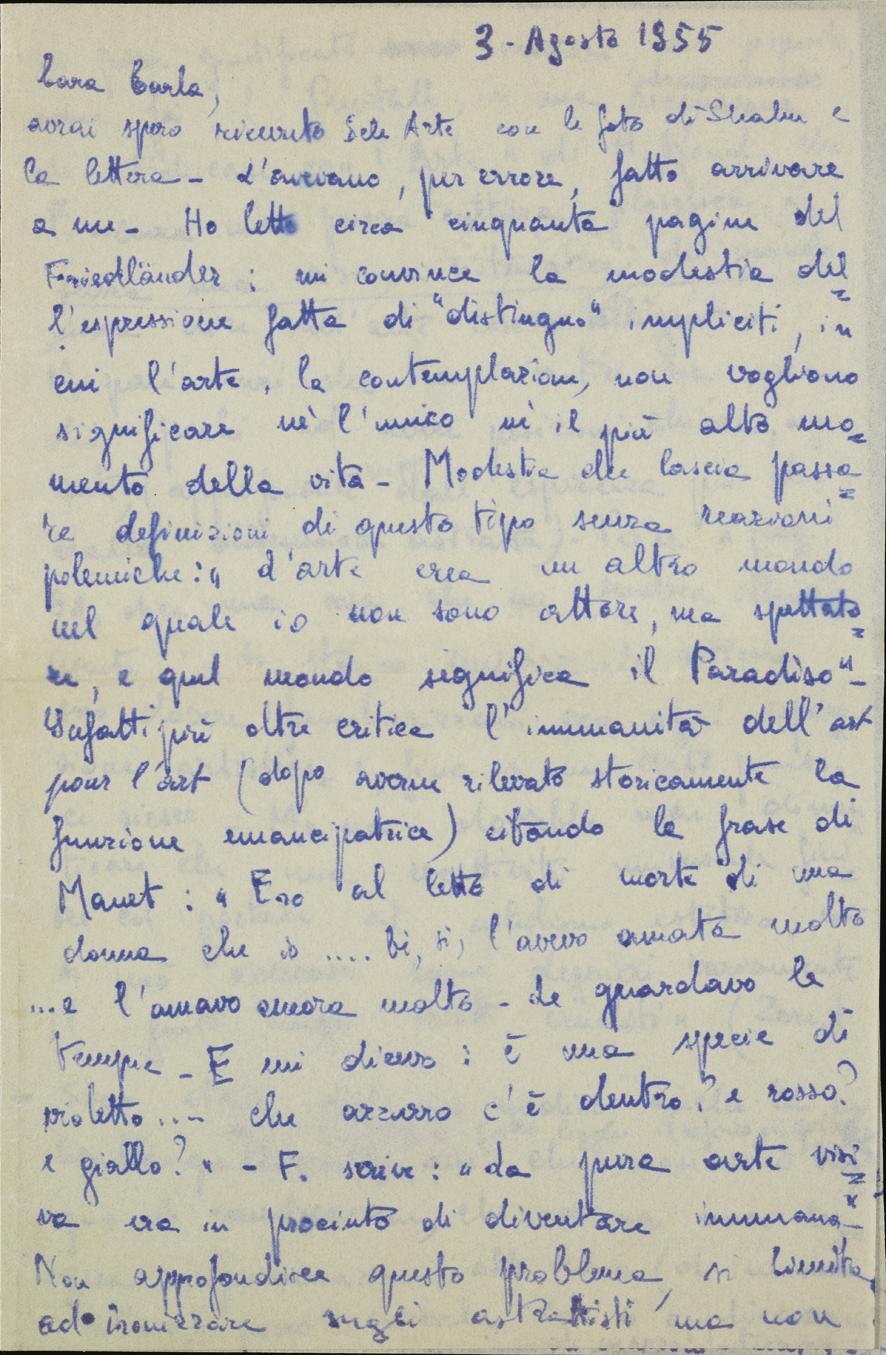 3 - Agosto 1955
Cara Carla,
avrai spero ricevuto Sele Arte con le foto di Shahn e
la lettera - L'avevano, per errore, fatto arrivare
a me - Ho letto circa cinquanta pagine del
Friedländer : mi convince la modestia del=
l'espressione fatta di "distinguo" impliciti, in
cui l'arte, la contemplazione, non vogliono
significare nè l'unico nè il più alto mo=
mento della vita - Modestia che lascia passa=
re definizioni di questo tipo senza reazioni
polemiche : " L'arte crea un altro mondo
nel quale io non sono attore, ma spettato=
re, e quel mondo significa il Paradiso" -
Infatti più oltre critica l'inumanità dell'art
pour l'art (dopo averne rilevato storicamente la
funzione emancipatrice) citando la frase di
Manet : " Ero al letto di morte di una
donna che io .... Sì, sì, l'avevo amata molto
... e l'amavo ancora molto - Le guardavo le
tempie - E mi dicevo : è una specie di
violetto .... che azzurro c'è dentro? e rosso?
e giallo? " - F. scrive : " La pura arte visi=
va era in procinto di diventare inumana" -
Non approfondisce questo problema, si limita
ad ironizzare sugli astrattisti, ma non